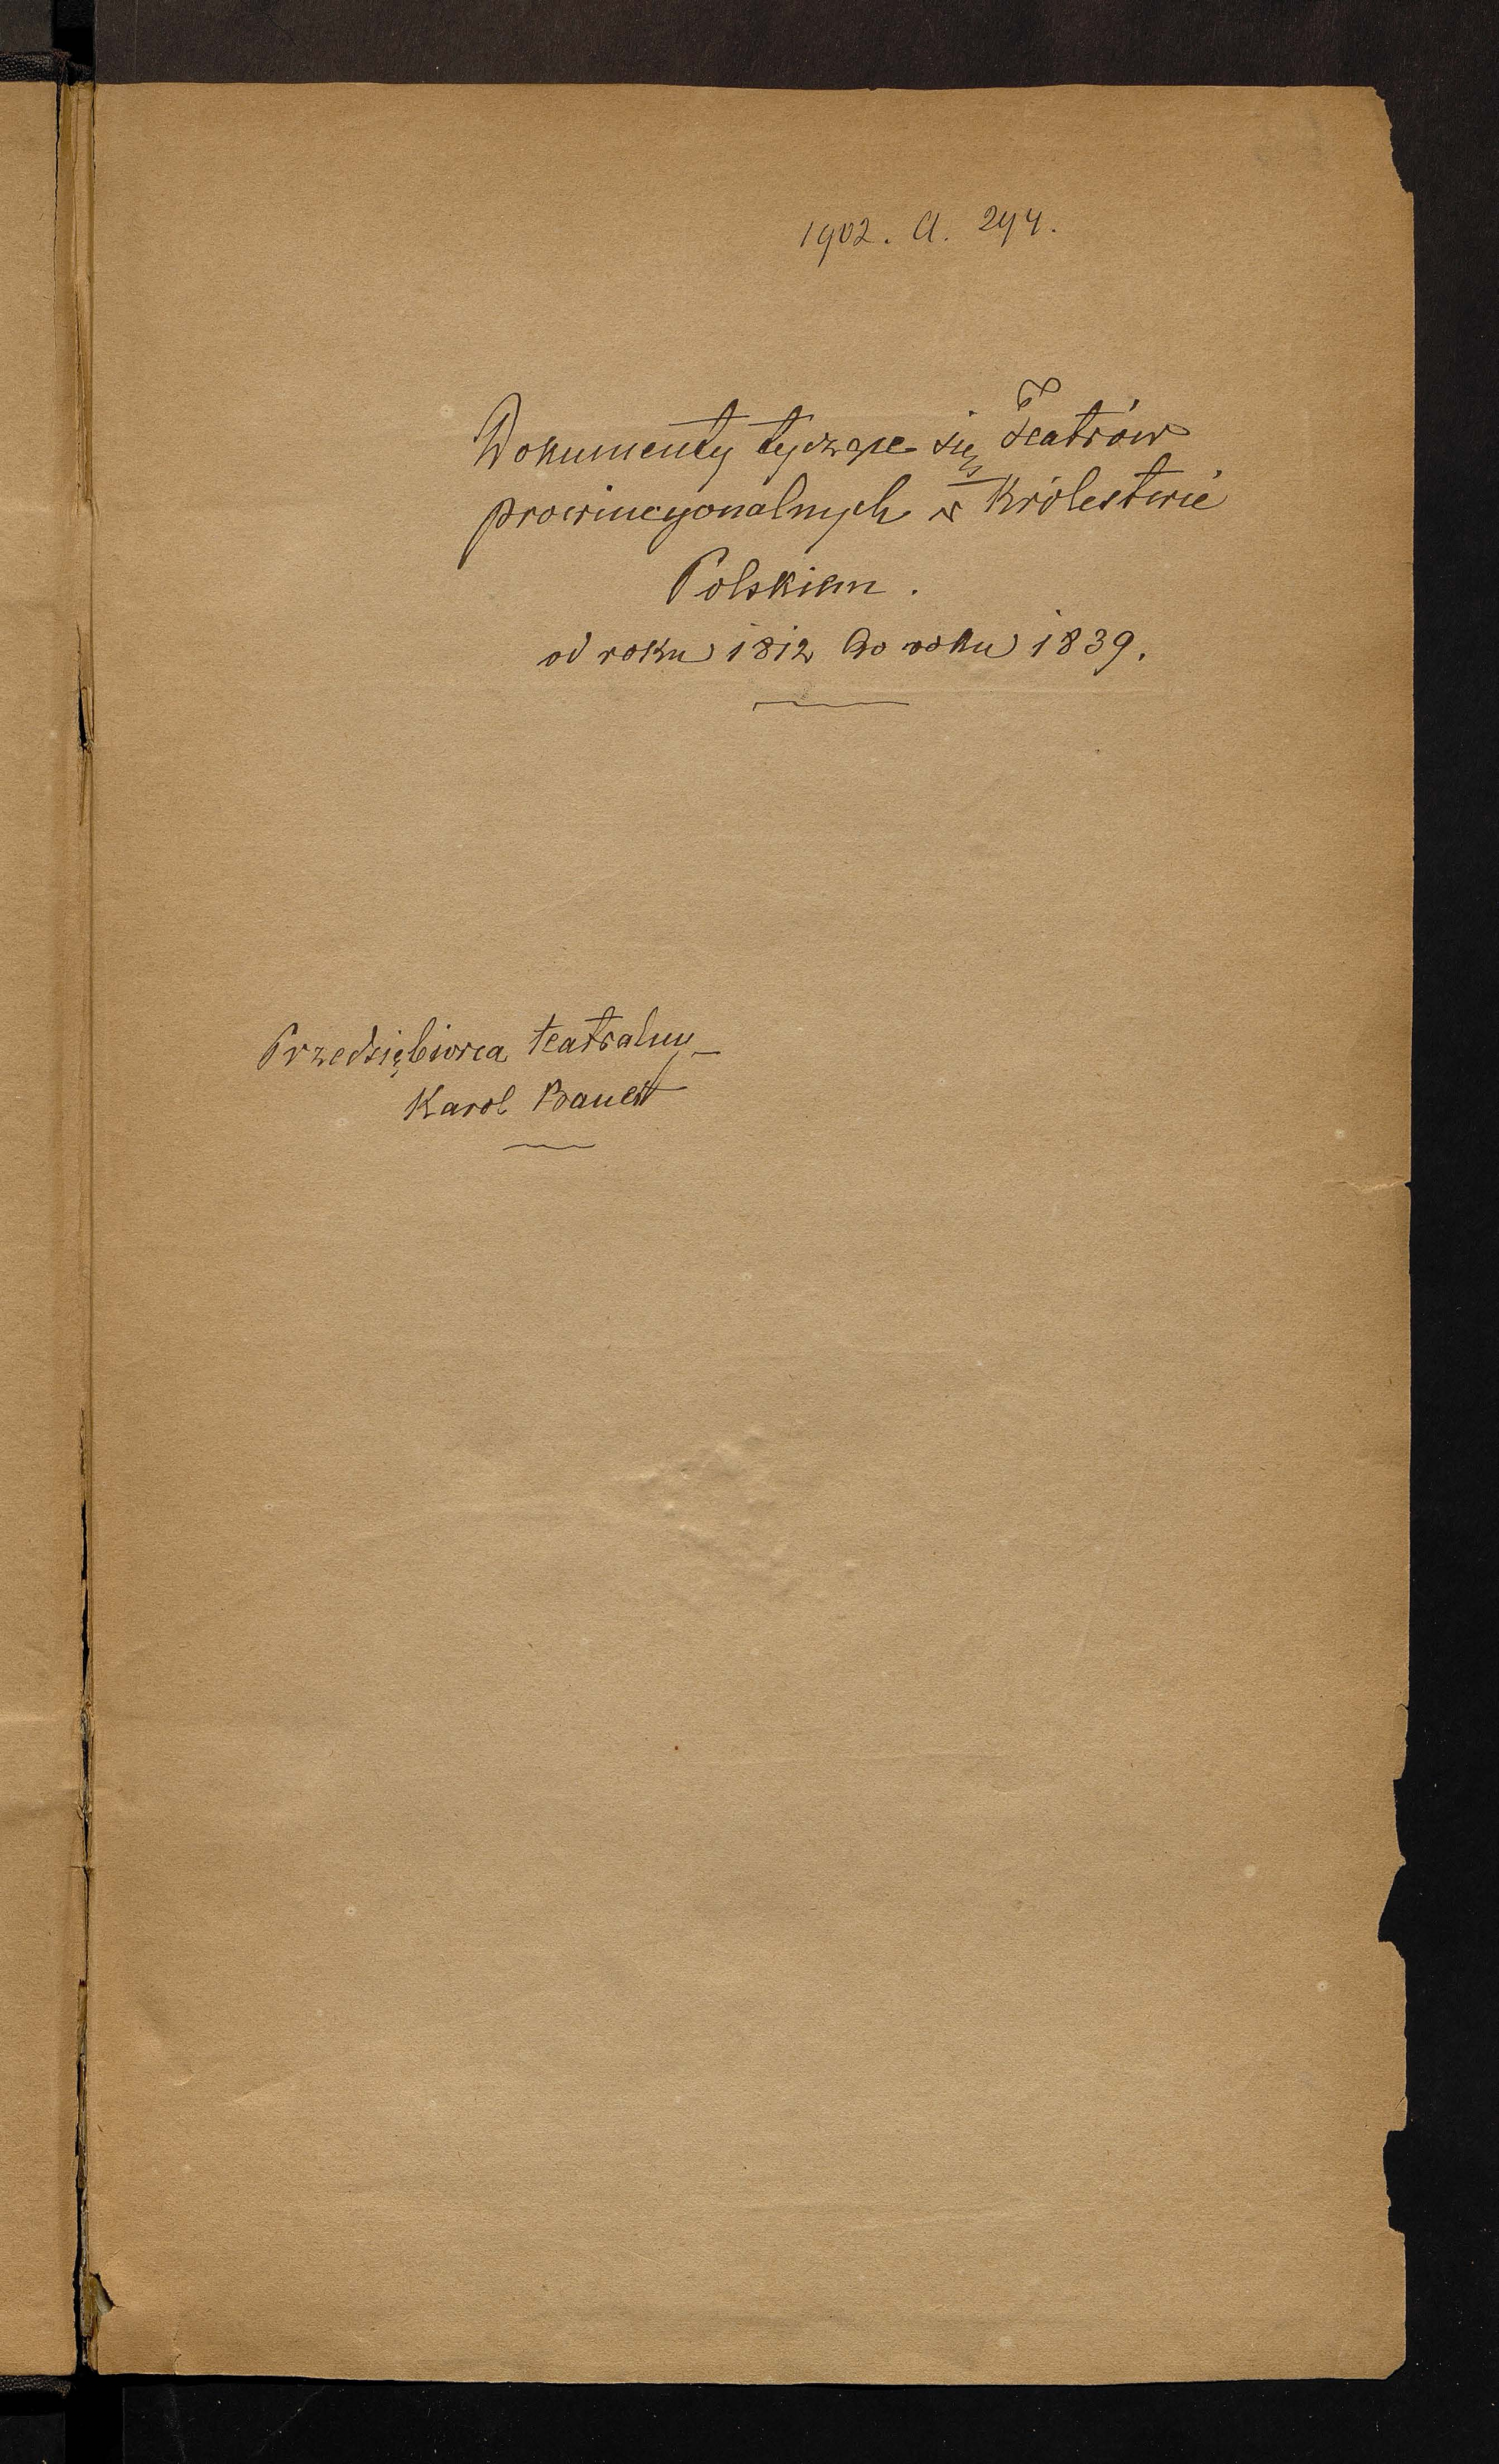 1902. A. 294.
Dokumenty tyczące się Teatrów
prowincyonalnych w Królestwie
Polskiem.
od roku 1812 do roku 1839.
Przedsiębiorca teatralny
Karol